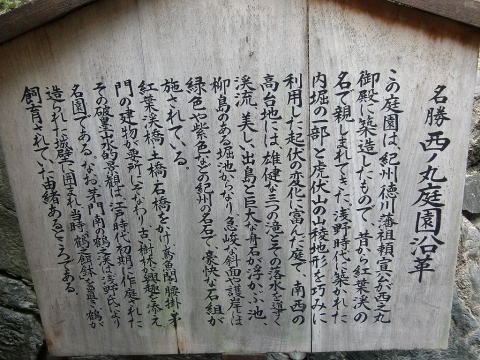 名勝 西ノ丸庭園沿革
この庭園は、紀州徳川藩祖頼宣公が西之丸
御殿に築造したもので、昔から紅葉渓の
名で親しまれてきた。浅野時代に築かれた
内堀の一部と虎伏山の山稜地形を巧みに
利用した起伏の変化に富んだ庭で、南西の
高台地には、雄健な三つの滝とその落水を導く
渓流、美しい出島と巨大な舟石が浮かぶ池、
柳島のある堀池からなり、急峻な斜面や護岸は
緑色や紫色などの紀州の名石で、豪快な石組が
施されている。
紅葉渓橋、土橋、石橋をかけ、鳶魚閣、腰掛、茅
門の建物が要所にそなわり、古樹林が興趣を添え
その破墨山水的景観は、江戸時代初期に作庭された
名園である。なお、茅門南の鶴之渓は浅野氏により
造られた城壁に囲まれ、当時、鶴の餌鉢を置き、鶴が
飼育されていた由緒あるところである。